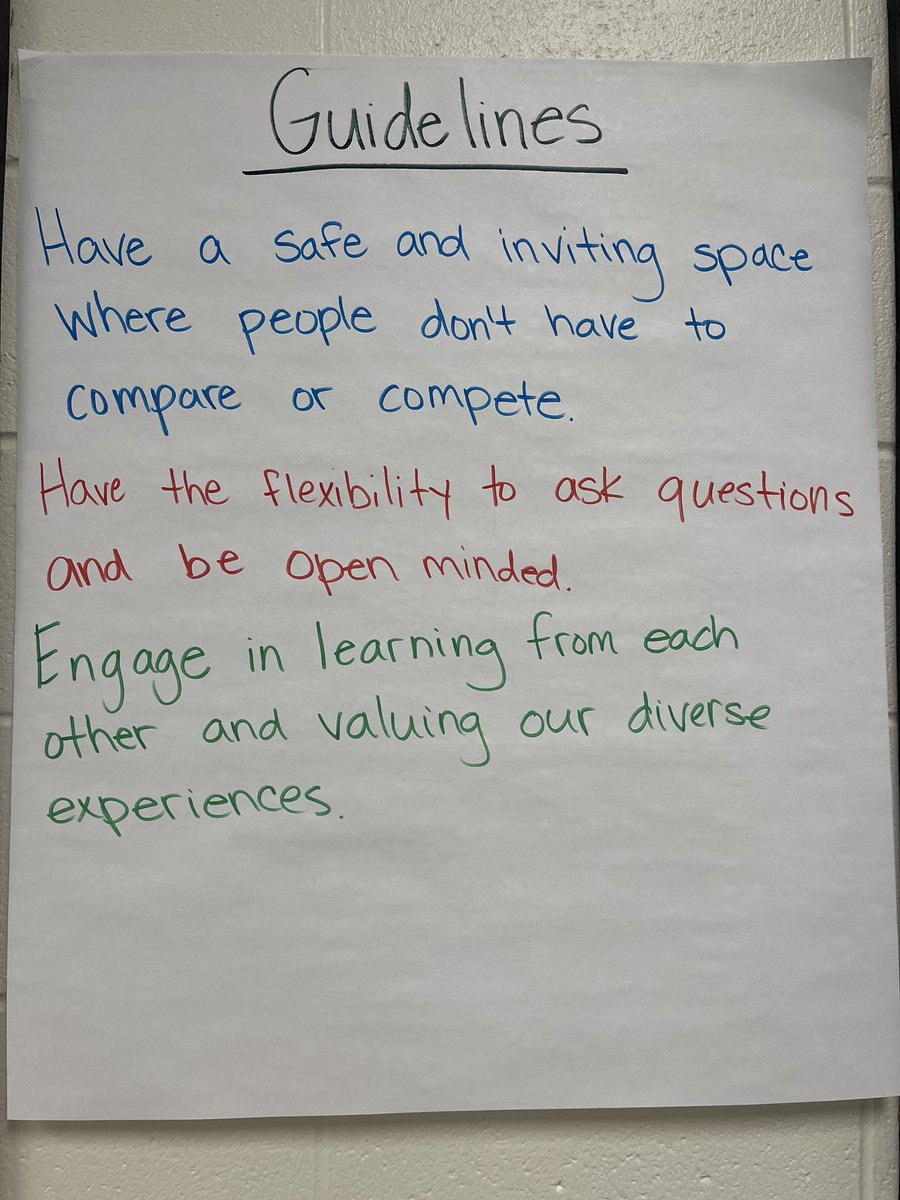 Guidelines
Have a safe and inviting space
where people don't have to
compare or compete.
Have the flexibility to ask questions
and be open minded.
Engage in learning from each
other and valuing our diverse
experiences.